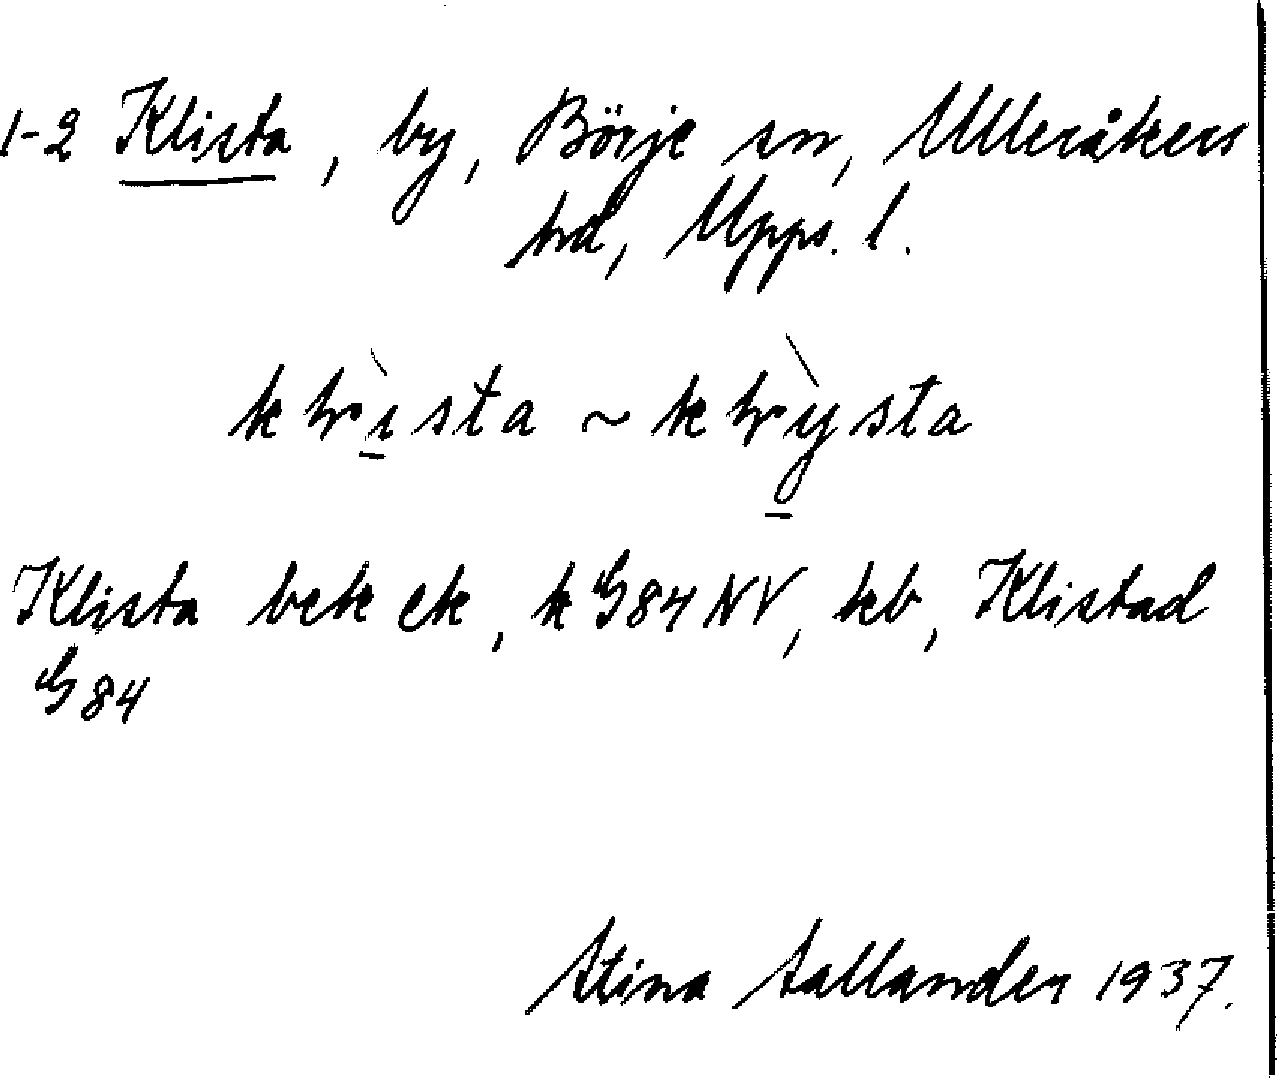 1-2 Klista, by, Börje sn, Ulleråkers
hd, Upps. l.
Klista bek ek, k G84 NV, kb, Klistad
G84
Stina Sallander 1937.